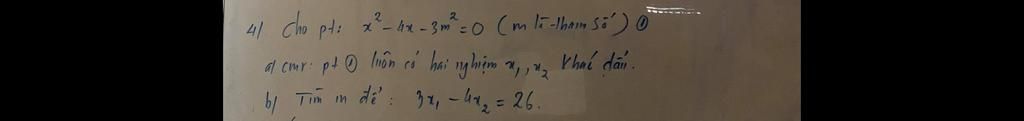 4/ Cho pt: x² - 4x - 3m² = 0 (m là tham số) ①
a/ cmr: pt ① luôn có hai nghiệm x₁, x₂ khác dấu.
b/ Tìm m để: 3x₁ - 4x₂ = 26.